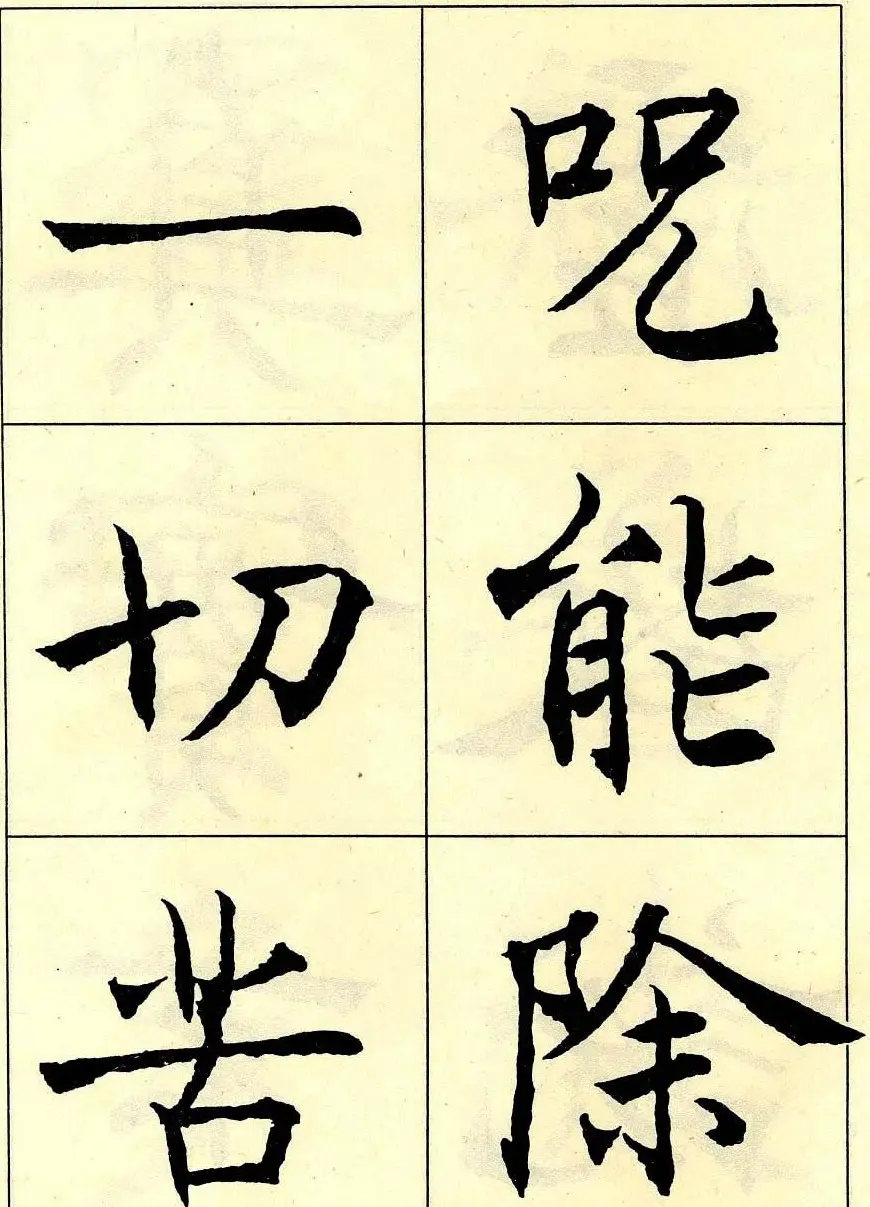 咒能除
一切苦